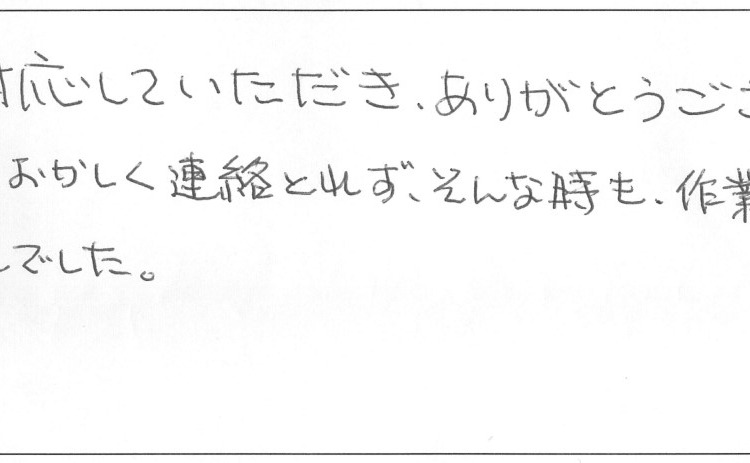 対応していただき、ありがとうござ
おかしく連絡とれず、そんな時も、作業
んでした。